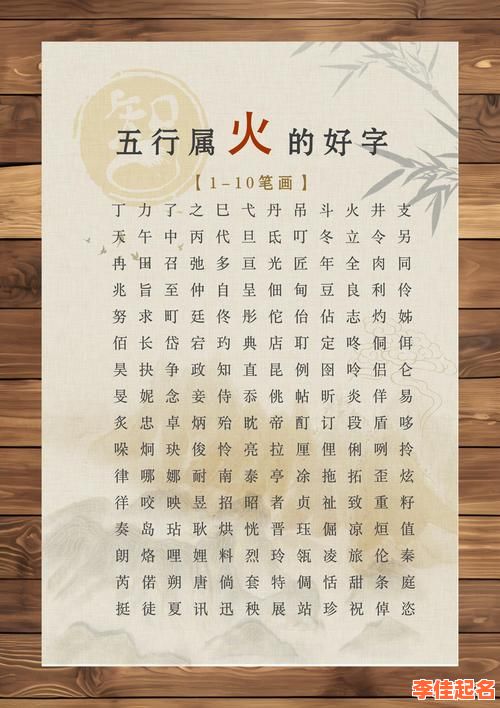 智
五行属火的好字
【1-10笔画】
丁 力 了 之 巳 弋 丹 吊 斗 火 井 支
天 午 中 丙 代 旦 氐 叮 冬 立 令 另
冉 田 召 弛 多 亘 光 匠 年 全 肉 同
兆 旨 至 仲 自 呈 佃 甸 豆 良 利 伶
努 求 町 廷 佟 玓 彤 助 佔 志 灼 姊
佰 长 岧 宕 彤 典 佗 耵 定 咚 侗 佴
昊 抉 争 政 知 直 店 例 图 呤 侣 仑
旻 妮 念 妾 侍 忝 昆 帖 昕 炎 佯 易
炙 忠 卓 炳 殆 眈 佻 酊 订 段 盾 哆
哚 炯 玦 俊 怜 亮 帝 厘 俚 俐 咧 拎
律 哪 娜 耐 南 泰 拉 凃 拖 拓 歪 炫
徉 咬 映 昱 招 昭 亭 贞 祉 致 重 籽
奏 岛 玷 耿 烘 恍 者 珏 倔 凉 烜 值
朗 烙 哩 娌 料 烈 晋 瓴 凌 旅 伦 秦
芮 偌 朔 唐 倘 套 玲 倜 恬 甜 条 庭
挺 徒 夏 讯 迅 秧 特 展 站 珍 祝 倬 恣
李佳起名